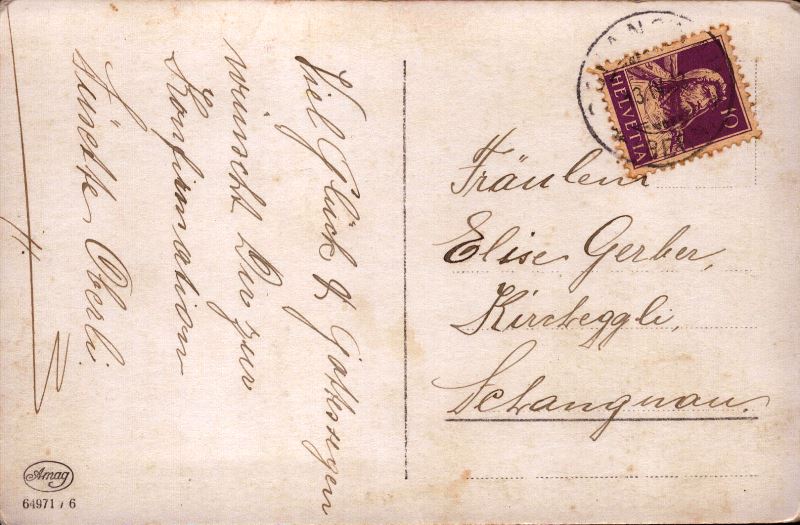 Viel Glück & Gottessegen
wünscht Dir zur
Konfirmation
Lisette Oberli.
HELVETIA
10
Fräulein
Elise Gerber,
Kircheggli,
Schangnau.
Amag
64971 / 6